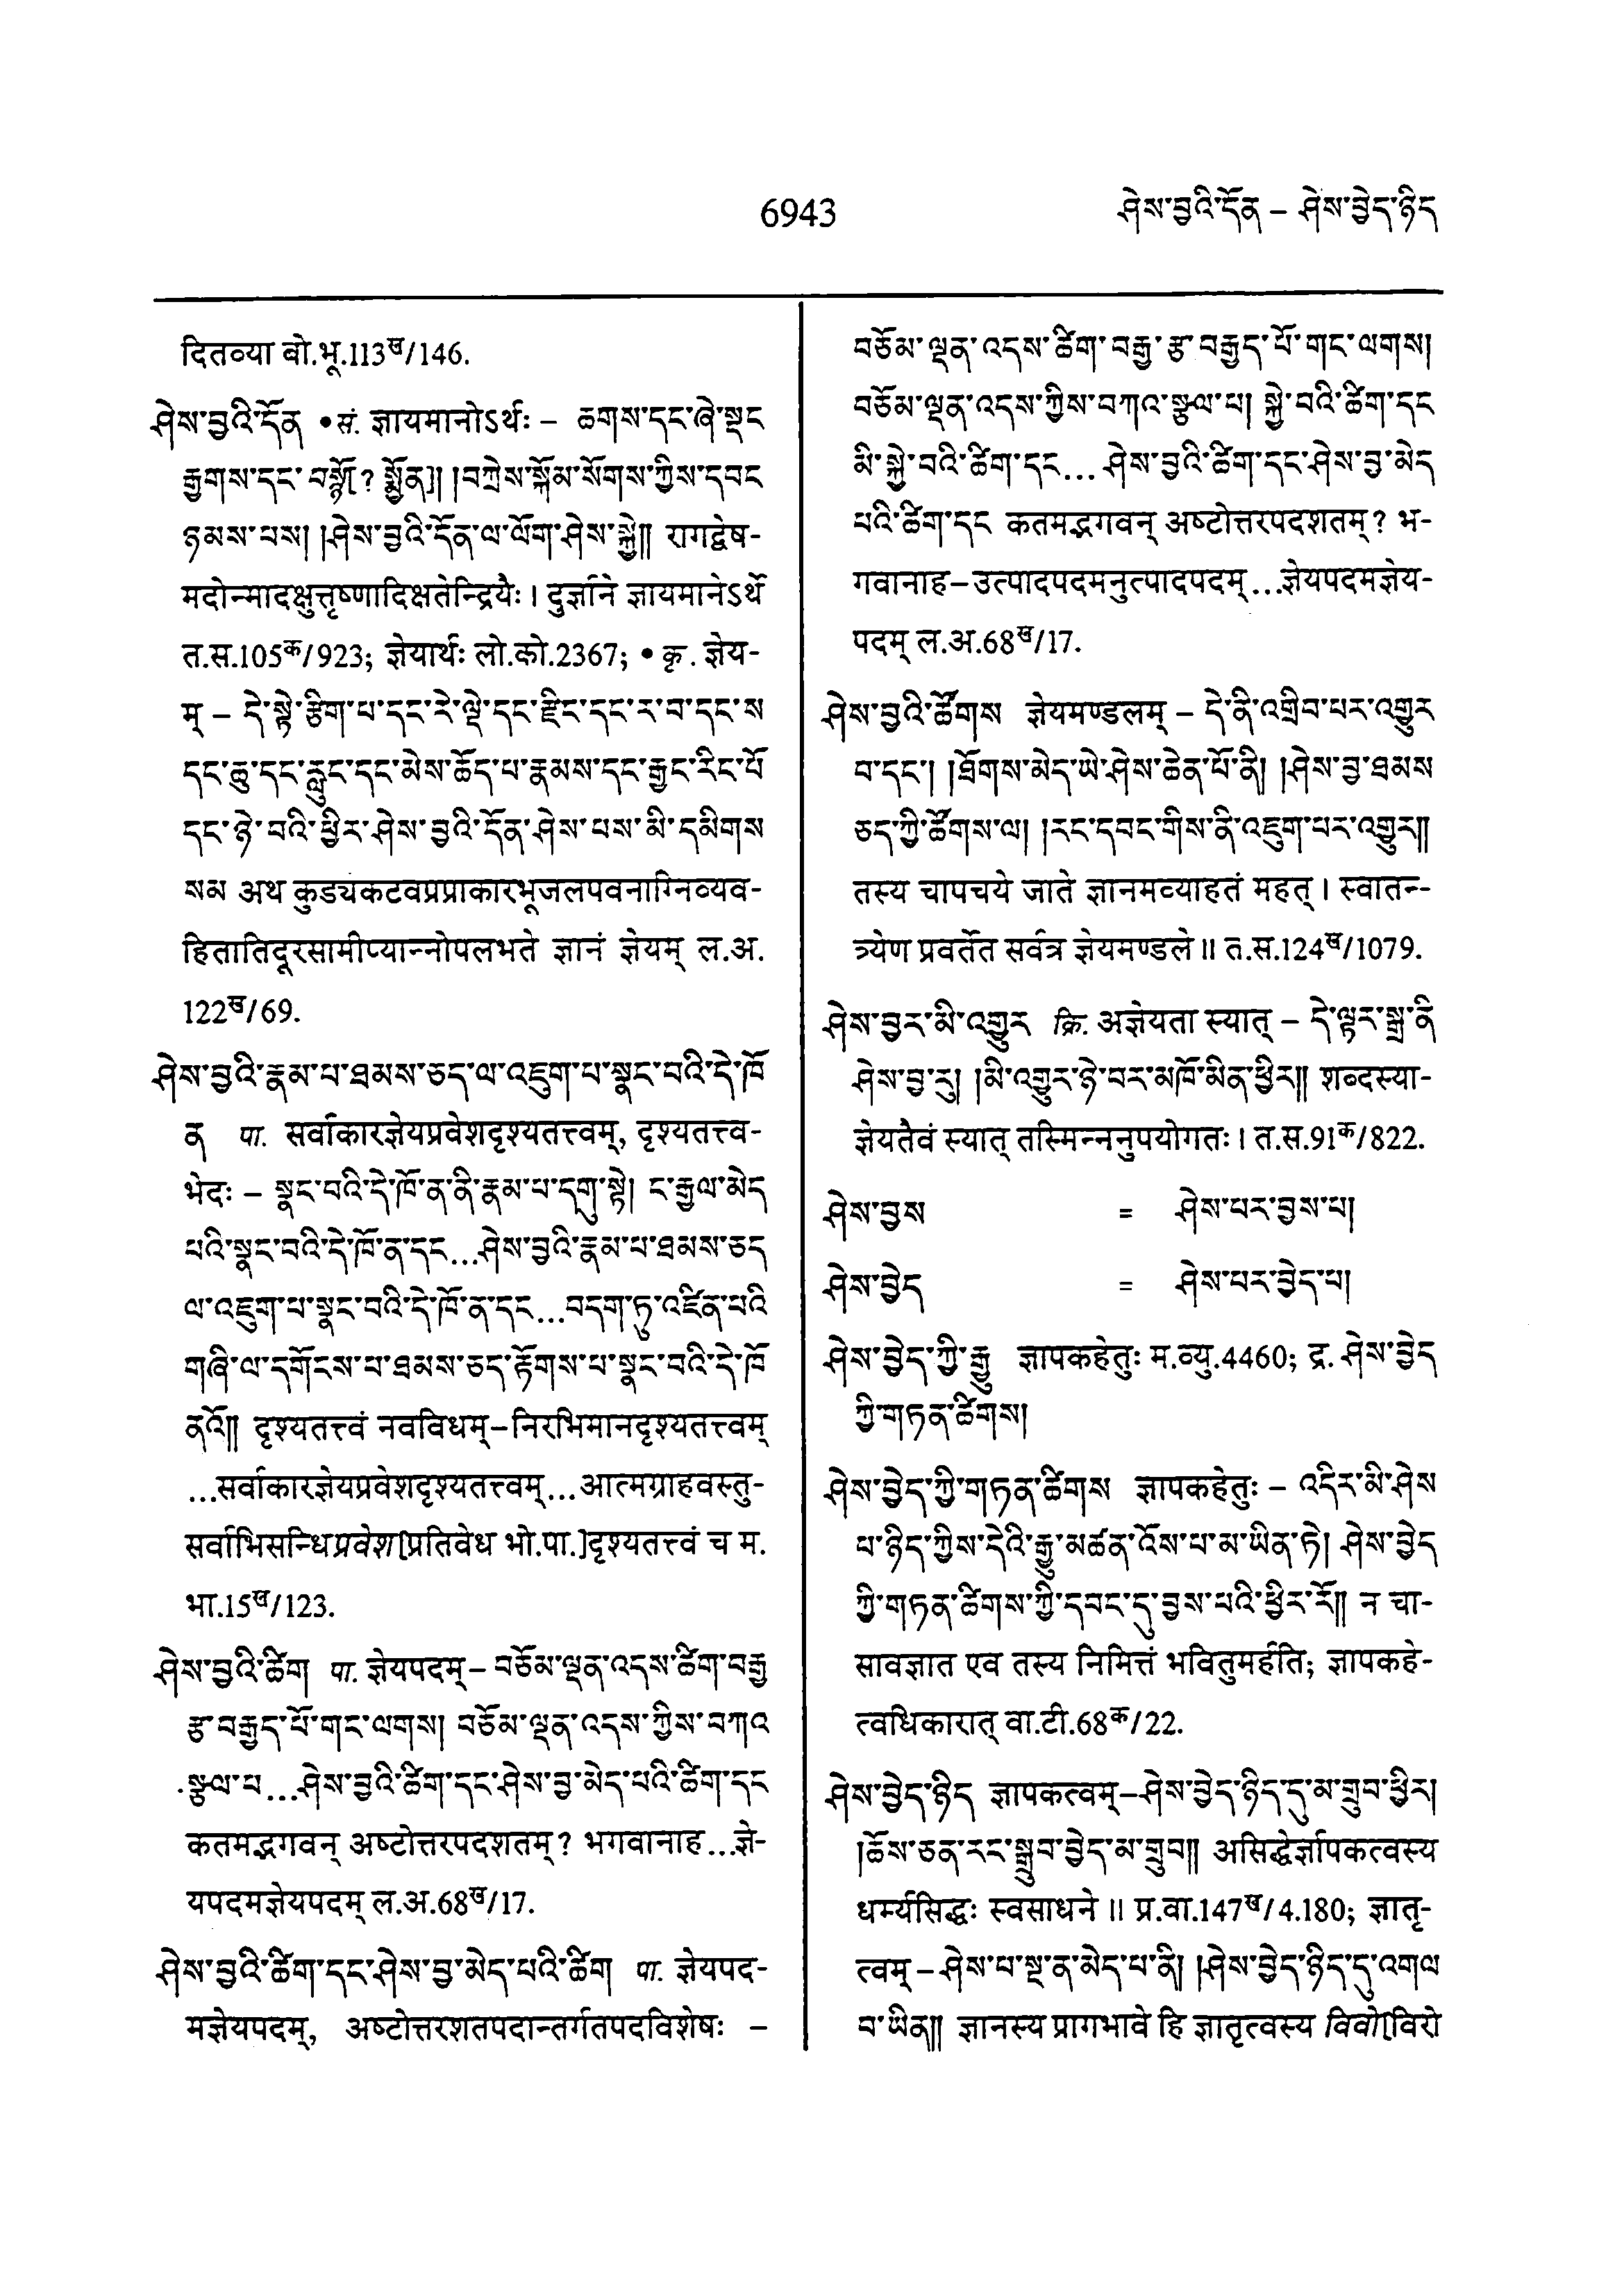 6943
ཤེས་བྱའི་དོན – ཤེས་བྱེད་ཉིད
दितव्या बो.भू.113ख/146.
ཤེས་བྱའི་དོན • सं. ज्ञायमानोऽर्थः – ཆགས་དང་ཞེ་སྡང
རྒྱགས་དང་བསྙོ[? སྨྱོན]། །བཀྲེས་སྐོམ་སོགས་ཀྱིས་དབང
ཉམས་པས། །ཤེས་བྱའི་དོན་ལ་ལོག་ཤེས་སྐྱེ།། रागद्वेष-
मदोन्मादक्षुत्तृष्णादिक्षतेन्द्रियैः । दुर्ज्ञाने ज्ञायमानेऽर्थे
त.स.105क/923; ज्ञेयार्थः लो.को.2367; • कृ. ज्ञेय-
म् – དེ་སྟེ་རྩིག་པ་དང་རེ་ལྡེ་དང་རྫིང་དང་ར་བ་དང་ས
དང་ཆུ་དང་རླུང་དང་མེས་ཆོད་པ་རྣམས་དང་རྒྱང་རིང་པོ
དང་ཉེ་བའི་ཕྱིར་ཤེས་བྱའི་དོན་ཤེས་པས་མི་དམིགས
སམ अथ कुड्यकटवप्रप्राकारभूजलपवनाग्निव्यव-
हितातिदूरसामीप्यान्नोपलभते ज्ञानं ज्ञेयम् ल.अ.
122ख/69.
ཤེས་བྱའི་རྣམ་པ་ཐམས་ཅད་ལ་འཇུག་པ་སྣང་བའི་དེ་ཁོ
ན पा. सर्वाकारज्ञेयप्रवेशदृश्यतत्त्वम्, दृश्यतत्त्व-
भेदः – སྣང་བའི་དེ་ཁོ་ན་ནི་རྣམ་པ་དགུ་སྟེ། ང་རྒྱལ་མེད
པའི་སྣང་བའི་དེ་ཁོ་ན་དང...ཤེས་བྱའི་རྣམ་པ་ཐམས་ཅད
ལ་འཇུག་པ་སྣང་བའི་དེ་ཁོ་ན་དང...བདག་ཏུ་འཛིན་པའི
གཞི་ལ་དགོངས་པ་ཐམས་ཅད་རྟོགས་པ་སྣང་བའི་དེ་ཁོ
ནའོ།། दृश्यतत्त्वं नवविधम्–निरभिमानदृश्यतत्त्वम्
...सर्वाकारज्ञेयप्रवेशदृश्यतत्त्वम्...आत्मग्राहवस्तु-
सर्वाभिसन्धिप्रवेश[प्रतिवेध भो.पा.]दृश्यतत्त्वं च म.
भा.15ख/123.
ཤེས་བྱའི་ཚིག पा. ज्ञेयपदम् – བཅོམ་ལྡན་འདས་ཚིག་བརྒྱ
རྩ་བརྒྱད་པོ་གང་ལགས། བཅོམ་ལྡན་འདས་ཀྱིས་བཀའ
སྩལ་པ...ཤེས་བྱའི་ཚིག་དང་ཤེས་བྱ་མེད་པའི་ཚིག་དང
कतमद्भगवन् अष्टोत्तरपदशतम्? भगवानाह...ज्ञे-
यपदमज्ञेयपदम् ल.अ.68ख/17.
ཤེས་བྱའི་ཚིག་དང་ཤེས་བྱ་མེད་པའི་ཚིག पा. ज्ञेयपद-
मज्ञेयपदम्, अष्टोत्तरशतपदान्तर्गतपदविशेषः –
བཅོམ་ལྡན་འདས་ཚིག་བརྒྱ་རྩ་བརྒྱད་པོ་གང་ལགས།
བཅོམ་ལྡན་འདས་ཀྱིས་བཀའ་སྩལ་པ། སྐྱེ་བའི་ཚིག་དང
མི་སྐྱེ་བའི་ཚིག་དང...ཤེས་བྱའི་ཚིག་དང་ཤེས་བྱ་མེད
པའི་ཚིག་དང कतमद्भगवन् अष्टोत्तरपदशतम्? भ-
गवानाह–उत्पादपदमनुत्पादपदम्...ज्ञेयपदमज्ञेय-
पदम् ल.अ.68ख/17.
ཤེས་བྱའི་ཚོགས ज्ञेयमण्डलम् – དེ་ནི་འགྲིབ་པར་འགྱུར
བ་དང་། །ཐོགས་མེད་ཡེ་ཤེས་ཆེན་པོ་ནི། །ཤེས་བྱ་ཐམས
ཅད་ཀྱི་ཚོགས་ལ། །རང་དབང་གིས་ནི་འཇུག་པར་འགྱུར།།
तस्य चापचये जाते ज्ञानमव्याहतं महत् । स्वातन-
त्र्येण प्रवर्तेत सर्वत्र ज्ञेयमण्डले ॥ त.स.124ख/1079.
ཤེས་བྱར་མི་འགྱུར क्रि. अज्ञेयता स्यात् – དེ་ལྟར་སྒྲ་ནི
ཤེས་བྱ་རུ། །མི་འགྱུར་ཉེ་བར་མཁོ་མིན་ཕྱིར།། शब्दस्या-
ज्ञेयतैवं स्यात् तस्मिन्ननुपयोगतः । त.स.91क/822.
ཤེས་བྱས = ཤེས་པར་བྱས་པ།
ཤེས་བྱེད = ཤེས་པར་བྱེད་པ།
ཤེས་བྱེད་ཀྱི་རྒྱུ ज्ञापकहेतुः म.व्यु.4460; द्र. ཤེས་བྱེད
ཀྱི་གཏན་ཚིགས།
ཤེས་བྱེད་ཀྱི་གཏན་ཚིགས ज्ञापकहेतुः – འདིར་མི་ཤེས
པ་ཉིད་ཀྱིས་དེའི་རྒྱུ་མཚན་འོས་པ་མ་ཡིན་ཏེ། ཤེས་བྱེད
ཀྱི་གཏན་ཚིགས་ཀྱི་དབང་དུ་བྱས་པའི་ཕྱིར་རོ།། न चा-
सावज्ञात एव तस्य निमित्तं भवितुमर्हति; ज्ञापकहे-
त्वधिकारात् वा.टी.68क/22.
ཤེས་བྱེད་ཉིད ज्ञापकत्वम्–ཤེས་བྱེད་ཉིད་དུ་མ་གྲུབ་ཕྱིར།
།ཆོས་ཅན་རང་སྒྲུབ་བྱེད་མ་གྲུབ།། असिद्धेर्ज्ञापकत्वस्य
धर्म्यसिद्धः स्वसाधने ॥ प्र.वा.147ख/4.180; ज्ञातृ-
त्वम् – ཤེས་པ་སྔ་ན་མེད་པ་ནི། །ཤེས་བྱེད་ཉིད་དུ་འགལ
བ་ཡིན།། ज्ञानस्य प्रागभावे हि ज्ञातृत्वस्य विवो[विरो